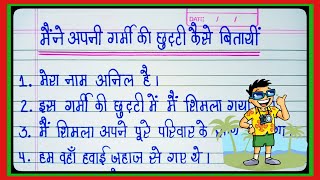 DATE / /
मैंने अपनी गर्मी की छुट्टी कैसे बितायीं
1. मेरा नाम अनिल है।
2. इस गर्मी की छुट्टी में मैं शिमला
3. मैं शिमला अपने पूरे परिवार के
४. हम वहाँ हवाई जहाज से गए थे।